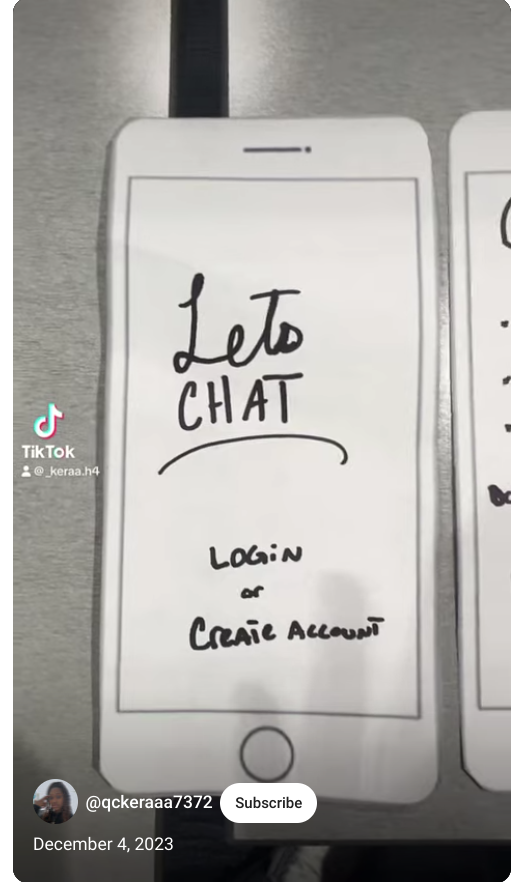 Lets
CHAT
LOGiN
or
Create Account
TikTok
@_keraa.h4
@qckeraaa7372
Subscribe
December 4, 2023